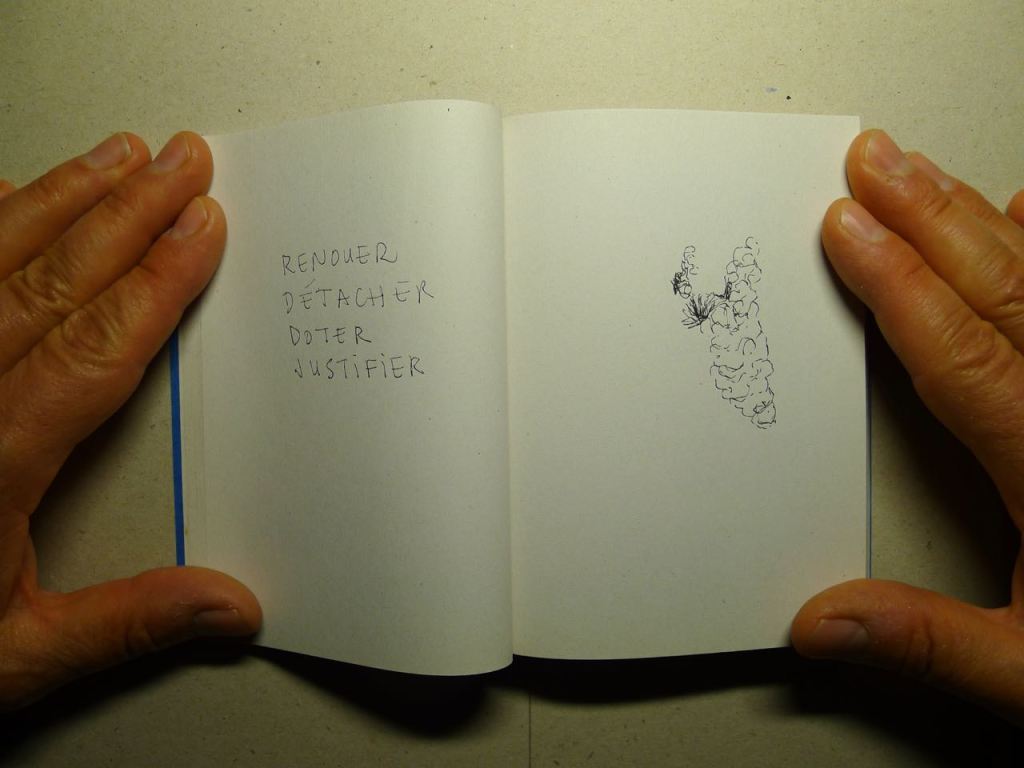 RENOUER
DÉTACHER
DOTER
JUSTIFIER